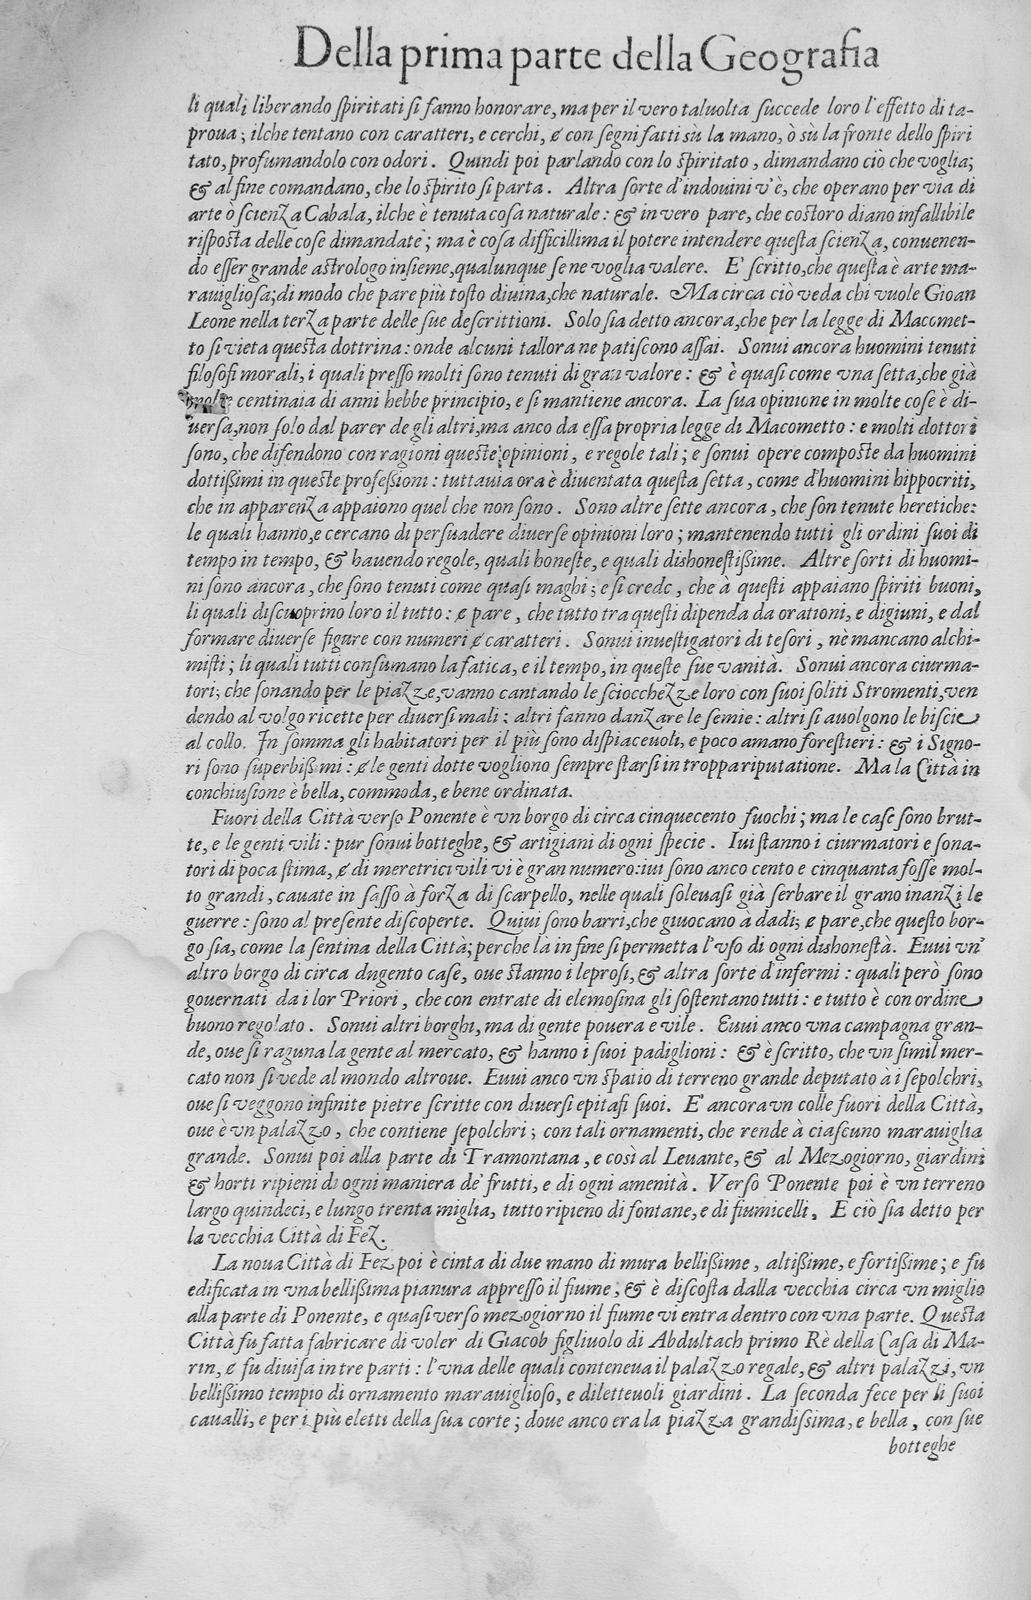 Della prima parte della Geografia
li quali liberando ſpiritati ſi fanno honorare, ma per il vero taluolta ſuccede loro l'effetto di ta-
proua; ilche tentano con caratteri, e cerchi, & con ſegni fatti sù la mano, ò sù la fronte dello ſpiri
tato, profumandolo con odori. Quindi poi parlando con lo ſpiritato, dimandano ciò che voglia;
& al fine comandano, che lo ſpirito ſi parta. Altra ſorte d'indouini v'è, che operano per via di
arte ò ſcienza Cabala, ilche è tenuta coſa naturale: & in vero pare, che coſtoro diano infallibile
riſpoſta delle coſe dimandate; ma è coſa difficillima il potere intendere queſta ſcienza, conuenen-
do eſſer grande aſtrologo inſieme, qualunque ſe ne voglia valere. E' ſcritto, che queſta è arte ma-
rauiglioſa; di modo che pare più toſto diuina, che naturale. Ma circa ciò veda chi vuole Gioan
Leone nella terza parte delle ſue deſcrittioni. Solo ſia detto ancora, che per la legge di Macomet-
to ſi vieta queſta dottrina: onde alcuni tallora ne patiſcono aſſai. Sonui ancora huomini tenuti
filoſofi morali, i quali preſſo molti ſono tenuti di gran valore: & è quaſi come vna ſetta, che già
molte centinaia di anni hebbe principio, e ſi mantiene ancora. La ſua opinione in molte coſe è di-
uerſa, non ſolo dal parer de gli altri, ma anco da eſſa propria legge di Macometto: e molti dottori
ſono, che difendono con ragioni queſte opinioni, e regole tali; e ſonui opere compoſte da huomini
dottiſſimi in queſte profeſſioni: tuttauia ora è diuentata queſta ſetta, come d'huomini hippocriti,
che in apparenza appaiono quel che non ſono. Sono altre ſette ancora, che ſon tenute heretiche:
le quali hanno, e cercano di perſuadere diuerſe opinioni loro; mantenendo tutti gli ordini ſuoi di
tempo in tempo, & hauendo regole, quali honeſte, e quali dishoneſtiſſime. Altre ſorti di huomi-
ni ſono ancora, che ſono tenuti come quaſi maghi; e ſi crede, che à queſti appaiano ſpiriti buoni,
li quali diſcuoprino loro il tutto: & pare, che tutto tra queſti dipenda da orationi, e digiuni, e dal
formare diuerſe figure con numeri & caratteri. Sonui inueſtigatori di teſori, nè mancano alchi-
miſti; li quali tutti conſumano la fatica, e il tempo, in queſte ſue vanità. Sonui ancora ciurma-
tori; che ſonando per le piazze, vanno cantando le ſciocchezze loro con ſuoi ſoliti Stromenti, ven
dendo al volgo ricette per diuerſi mali; altri fanno danzare le ſemie: altri ſi auolgono le biſcie
al collo. In ſomma gli habitatori per il più ſono diſpiaceuoli, e poco amano foreſtieri: & i Signo-
ri ſono ſuperbiſſimi: & le genti dotte vogliono ſempre ſtarſi in troppa riputatione. Ma la Città in
conchiuſione è bella, commoda, e bene ordinata.
Fuori della Città verſo Ponente è vn borgo di circa cinquecento fuochi; ma le caſe ſono brut-
te, e le genti vili: pur ſonui botteghe, & artigiani di ogni ſpecie. Iui ſtanno i ciurmatori e ſona-
tori di poca ſtima, & di meretrici vili vi è gran numero: iui ſono anco cento e cinquanta foſſe mol-
to grandi, cauate in ſaſſo à forza di ſcarpello, nelle quali ſoleuaſi già ſerbare il grano inanzi le
guerre: ſono al preſente diſcoperte. Quiui ſono barri, che giuocano à dadi; & pare, che queſto bor-
go ſia, come la ſentina della Città; perche là in fine ſi permetta l'vſo di ogni dishoneſtà. Euui vn'
altro borgo di circa dugento caſe, oue ſtanno i leproſi, & altra ſorte d'infermi: quali però ſono
gouernati da i lor Priori, che con entrate di elemoſina gli ſoſtentano tutti: e tutto è con ordine
buono regolato. Sonui altri borghi, ma di gente pouera e vile. Euui anco vna campagna gran-
de, oue ſi raguna la gente al mercato, & hanno i ſuoi padiglioni: & è ſcritto, che vn ſimil mer-
cato non ſi vede al mondo altroue. Euui anco vn ſpatio di terreno grande deputato à i ſepolchri,
oue ſi veggono infinite pietre ſcritte con diuerſi epitafi ſuoi. E' ancora vn colle fuori della Città,
oue è vn palazzo, che contiene ſepolchri; con tali ornamenti, che rende à ciaſcuno marauiglia
grande. Sonui poi alla parte di Tramontana, e così al Leuante, & al Mezogiorno, giardini
& horti ripieni di ogni maniera de' frutti, e di ogni amenità. Verſo Ponente poi è vn terreno
largo quindeci, e lungo trenta miglia, tutto ripieno di fontane, e di fiumicelli. E ciò ſia detto per
la vecchia Città di Fez.
La noua Città di Fez poi è cinta di due mano di mura belliſſime, altiſſime, e fortiſſime; e fu
edificata in vna belliſſima pianura appreſſo il fiume; & è diſcoſta dalla vecchia circa vn miglio
alla parte di Ponente, e quaſi verſo mezogiorno il fiume vi entra dentro con vna parte. Queſta
Città fu fatta fabricare di voler di Giacob figliuolo di Abdultach primo Rè della Caſa di Ma-
rin, & fu diuiſa in tre parti: l'vna delle quali conteneua il palazzo regale, & altri palazzi, vn
belliſſimo tempio di ornamento marauiglioſo, e diletteuoli giardini. La ſeconda fece per li ſuoi
caualli, e per i più eletti della ſua corte; doue anco era la piazza grandiſſima, e bella, con ſue
botteghe